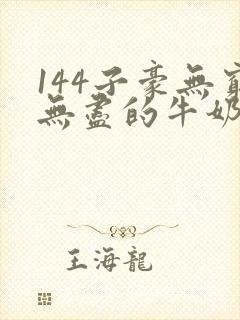 144子豪無窮
無盡的牛奶
王海龍